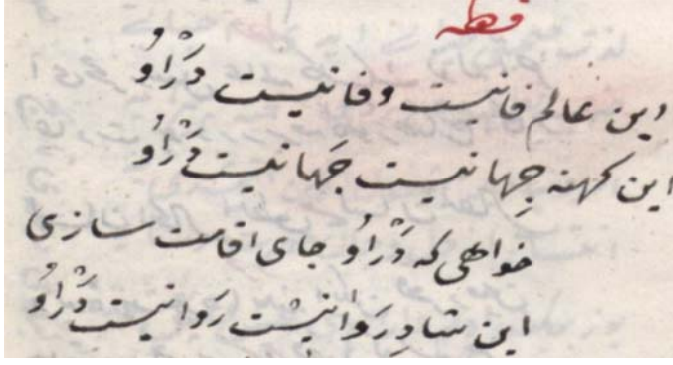 قطعه
این عالم فانیست وفا نیست دَرْاوُ
این کهنه جِهانیست جَها نیست دَرْاوُ
خواهی که دَرْاوُ جای اقامت سازی
این شادِرَوانیسْت رَوا نیست دَرْاوُ